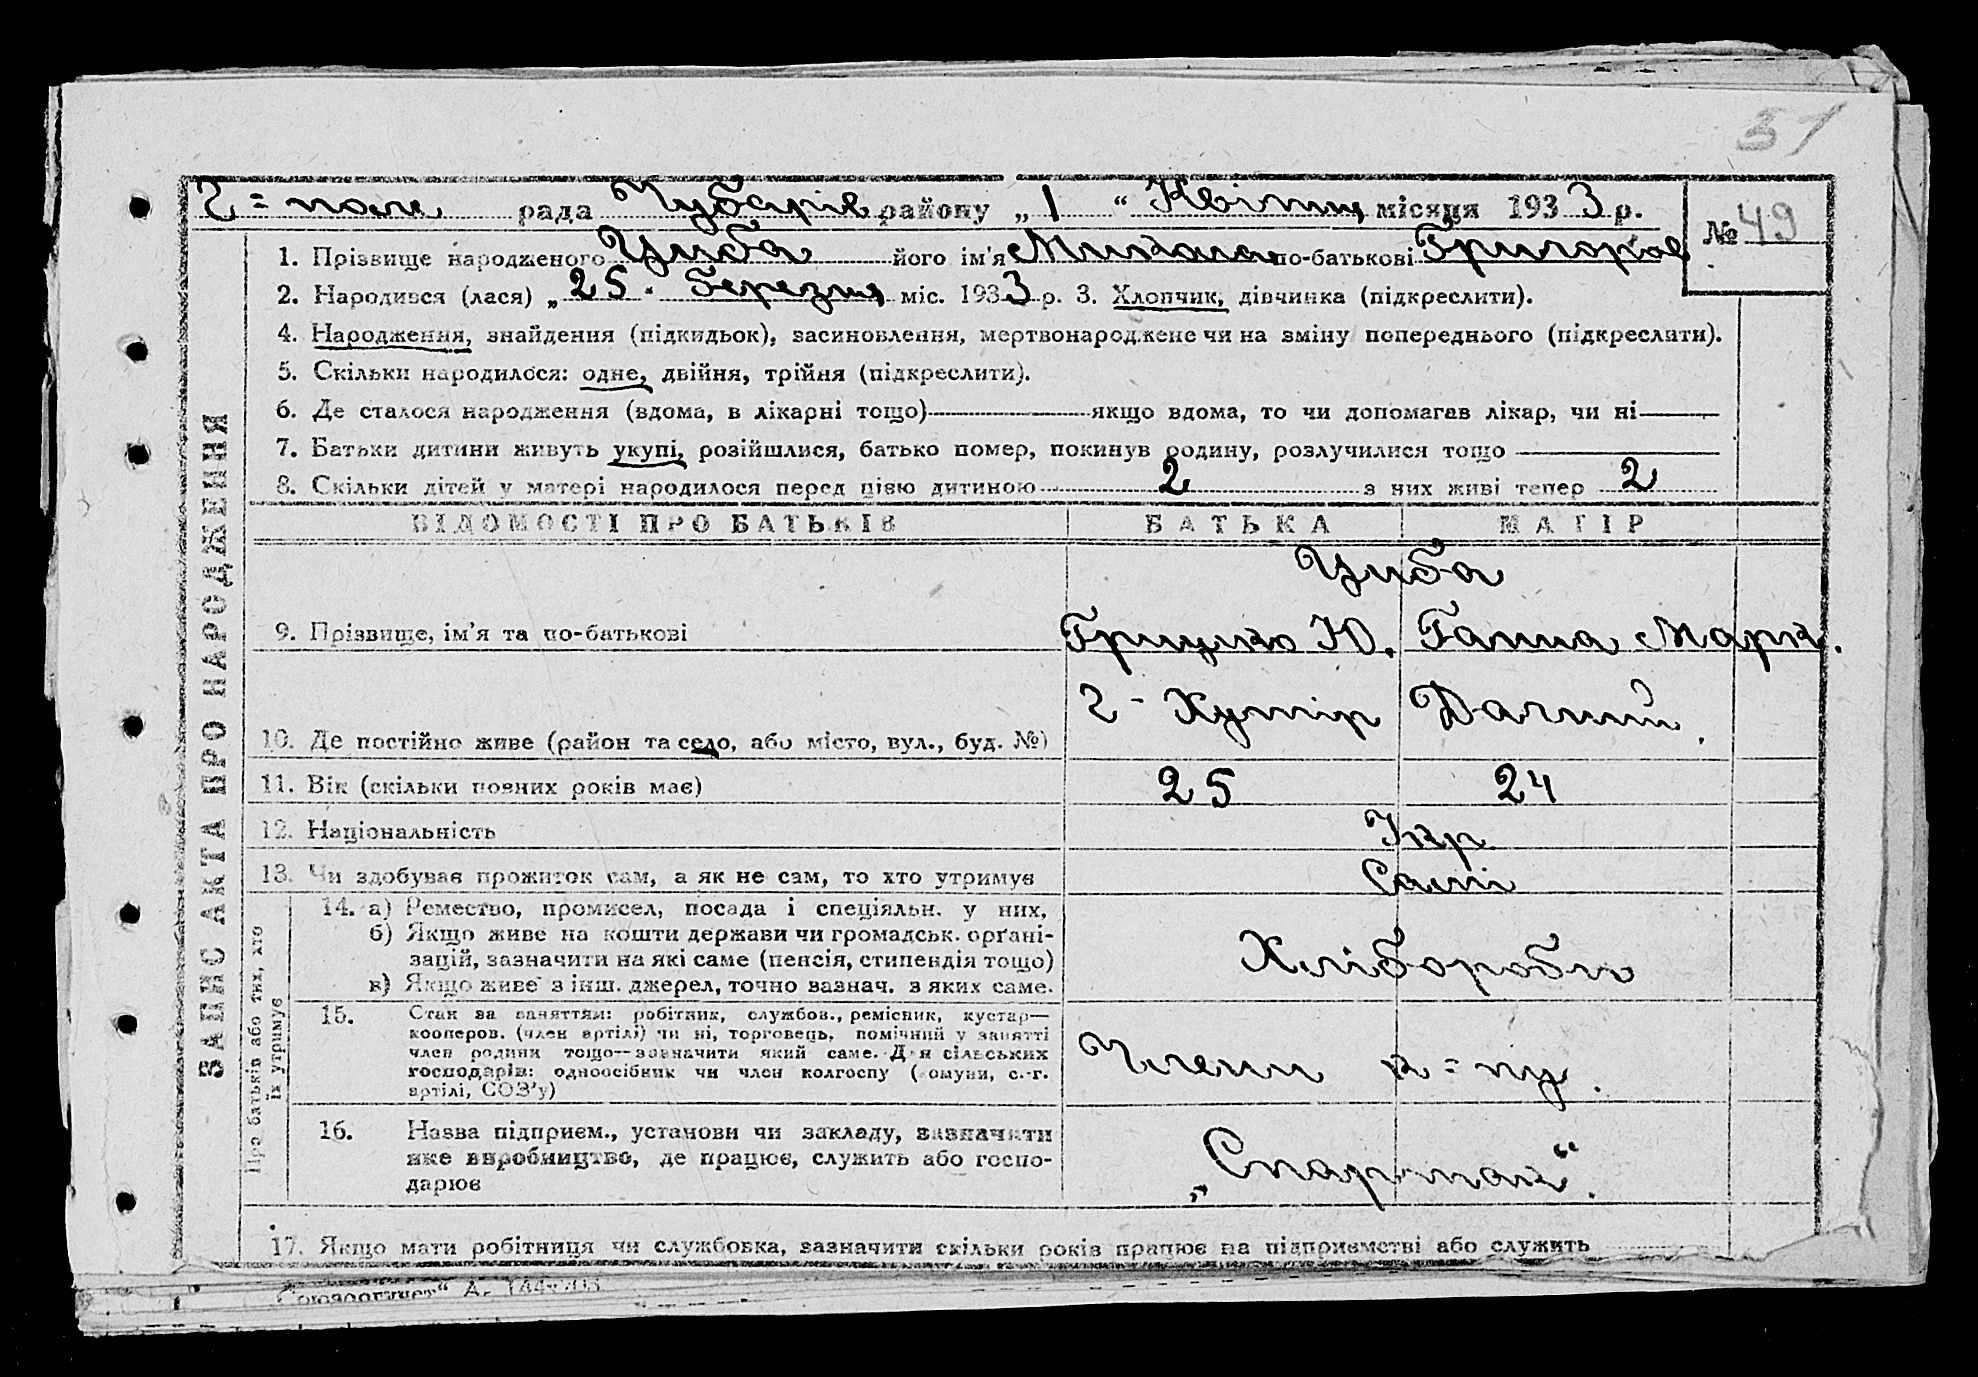 51
Г=поле рада Чубарів району „1“ Квітня місяця 1933 р.
№ 49
1. Прізвище народженого Циба його ім'я Микола по-батькові Григоров
2. Народився (лася) „25“ Березня міс. 1933 р. 3. Хлопчик, дівчинка (підкреслити).
4. Народження, знайдення (підкидьок), засиновлення, мертвонароджене чи на зміну попереднього (підкреслити).
5. Скільки народилося: одне, двійня, трійня (підкреслити).
6. Де сталося народження (вдома, в лікарні тощо) якщо вдома, то чи допомагав лікар, чи ні
7. Батьки дитини живуть укупі, розійшлися, батько помер, покинув родину, розлучилися тощо
8. Скільки дітей у матері народилося перед цією дитиною 2 з них живі тепер 2
ЗАПИС АКТА ПРО НАРОДЖЕННЯ
ВІДОМОСТІ ПРО БАТЬКІВ БАТЬКА МАТІР
Циба
9. Прізвище, ім'я та по-батькові Грицько Ю. Ганна Марк.
10. Де постійно живе (район та село, або місто, вул., буд. №) 2- Хутір Дачний.
11. Вік (скільки повних років має) 25 24
12. Національність Укр
13. Чи здобуває прожиток сам, а як не сам, то хто утримує Самі
Про батьків або тих, хто
їх утримує
14. а) Ремество, промисел, посада і спеціяльн. у них,
б) Якщо живе на кошти держави чи громадськ. орґані-
зацій, зазначити на які саме (пенсія, стипендія тощо)
в) Якщо живе з інш. джерел, точно зазнач. з яких саме.
Хлібороби
15. Стан за заняттям: робітник, службов., ремісник, кустар—
кооперов. (член артілі) чи ні, торговець, помічний у занятті
член родини тощо—зазначити який саме. Для сільських
господарів: одноосібник чи член колгоспу (комуни, с.-г.
артілі, СОЗ'у)
Члени к=пу.
16. Назва підприєм., установи чи закладу, зазначити
яке виробництво, де працює, служить або госпо-
дарює
„Спартак“.
17. Якщо мати робітниця чи службовка, зазначити скільки років працює на підприємстві або служить